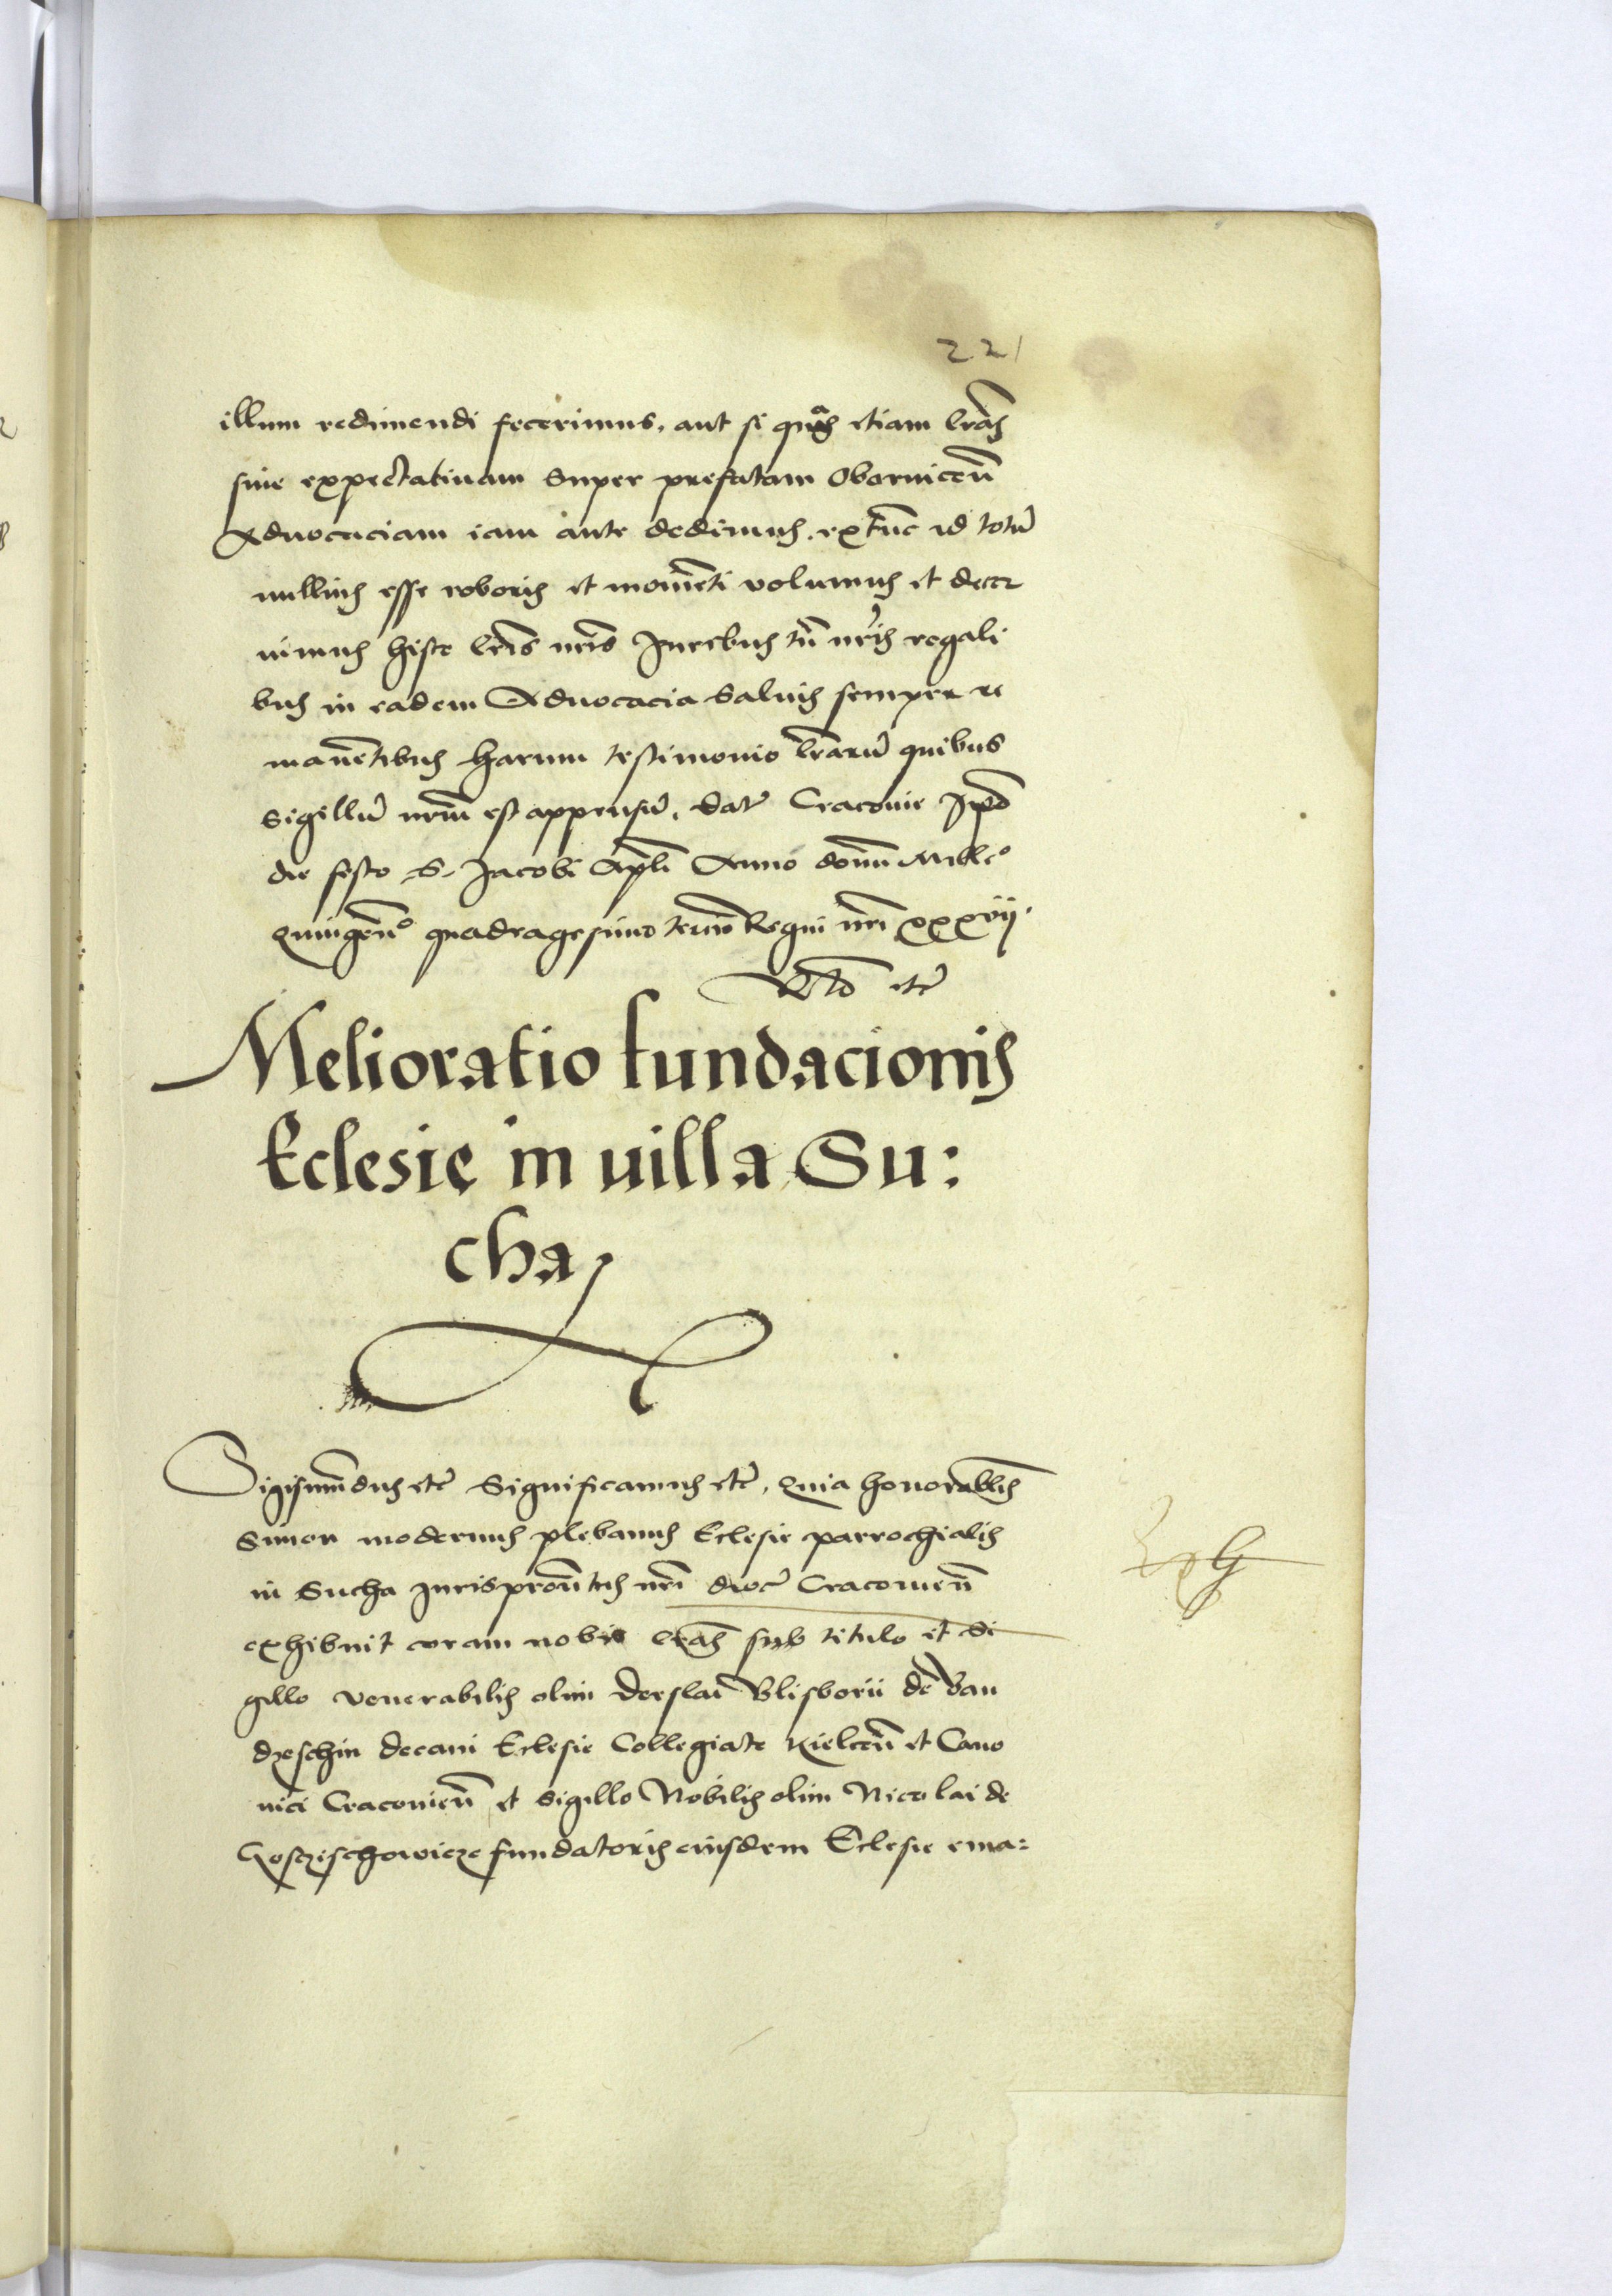 221
illum redimendi fecerimus, aut si quas etiam lras
siue expectatiuam super prefatam Obornicen
Aduocaciam iam ante dedimus, extunc id totu
nullius esse roboris et momenti volumus et decer
nimus hisce lris nris Juribus tn nris regali
bus in eadem Aduocacia saluis semper re
manetibus harum testimonio lraru quibus
sigillu nrm est appensu, dat Cracouie Ipso
die festo S. Jacobi Apli Anno domi Mille°
quingen° quadragesimo tercio Regni nri xxxvii.
etc
Melioratio fundacionis
Eclesie in uilla Su:
cha
Sigismundus etc Significamus etc, quia honorablis
Simon modernus plebanus Eclesie parrochialis
in Sucha Jurispronatus nri dioc Cracouien
exhibuit coram nobis lras sub titulo et si
gillo venerabilis olim Derslai Blisborii de Ban
dzeschin decani Eclesie Collegiate Kielcen et Cano
nici Cracouien et sigillo Nobilis olim Nicolai de
Goszeschowicze fundatoris eiusdem Eclesie ema: